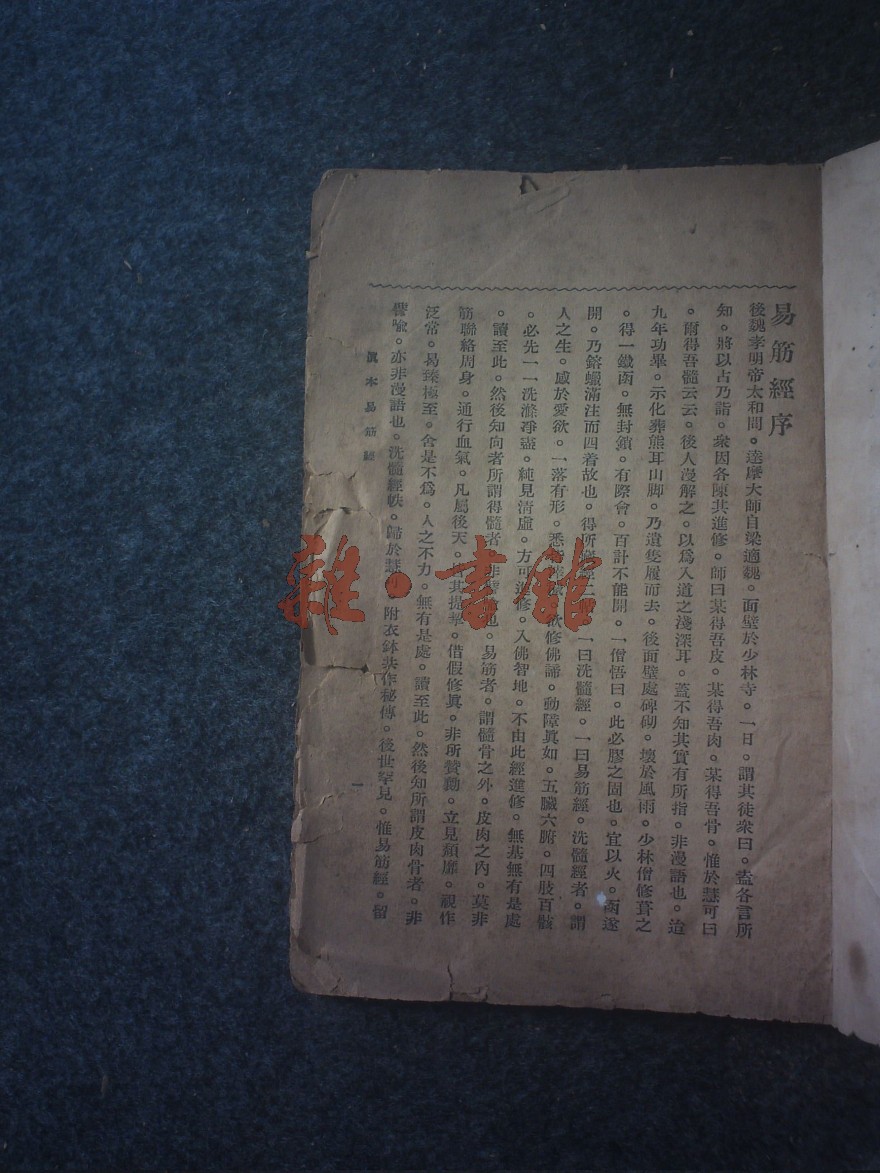 易筋經序
後魏孝明帝太和間。達摩大師自梁適魏。面壁於少林寺。一日。謂其徒衆曰。盍各言所
知。將以占乃詣。衆因各陳其進修。師曰某得吾皮。某得吾肉。某得吾骨。惟於慧可曰
。爾得吾髓云云。後人漫解之。以爲入道之淺深耳。蓋不知其實有所指。非漫語也。迨
九年功畢。示化葬熊耳山脚。乃遺隻履而去。後面壁處碑砌。壞於風雨。少林僧修葺之
。得一鐵函。無封鎖。有際會。百計不能開。一僧悟曰。此必膠之固也。宜以火。函遂
開。乃鎔蠟滿注而四着故也。得所 經二 一曰洗髓經。一曰易筋經。洗髓經者。謂
人之生。感於愛欲。一落有形。悉 欲修佛諦。動障眞如。五臟六腑。四肢百骸
。必先一一洗滌凈盡。純見清虛。方可進修。入佛智地。不由此經進修。無基無有是處
。讀至此。然後知向者所謂得髓者。非 也。易筋者。謂髓骨之外。皮肉之內。莫非
筋聯絡周身。通行血氣。凡屬後天。皆其提挈。借假修眞。非所贊勷。立見頹靡。視作
泛常。曷臻極至。舍是不爲。人之不力。無有是處。讀至此。然後知所謂皮肉骨者。非
譬喻。亦非漫語也。洗髓經帙。歸於慧 附衣鉢共作秘傳。後世罕見。惟易筋經。留
眞本易筋經
一
雜·書館